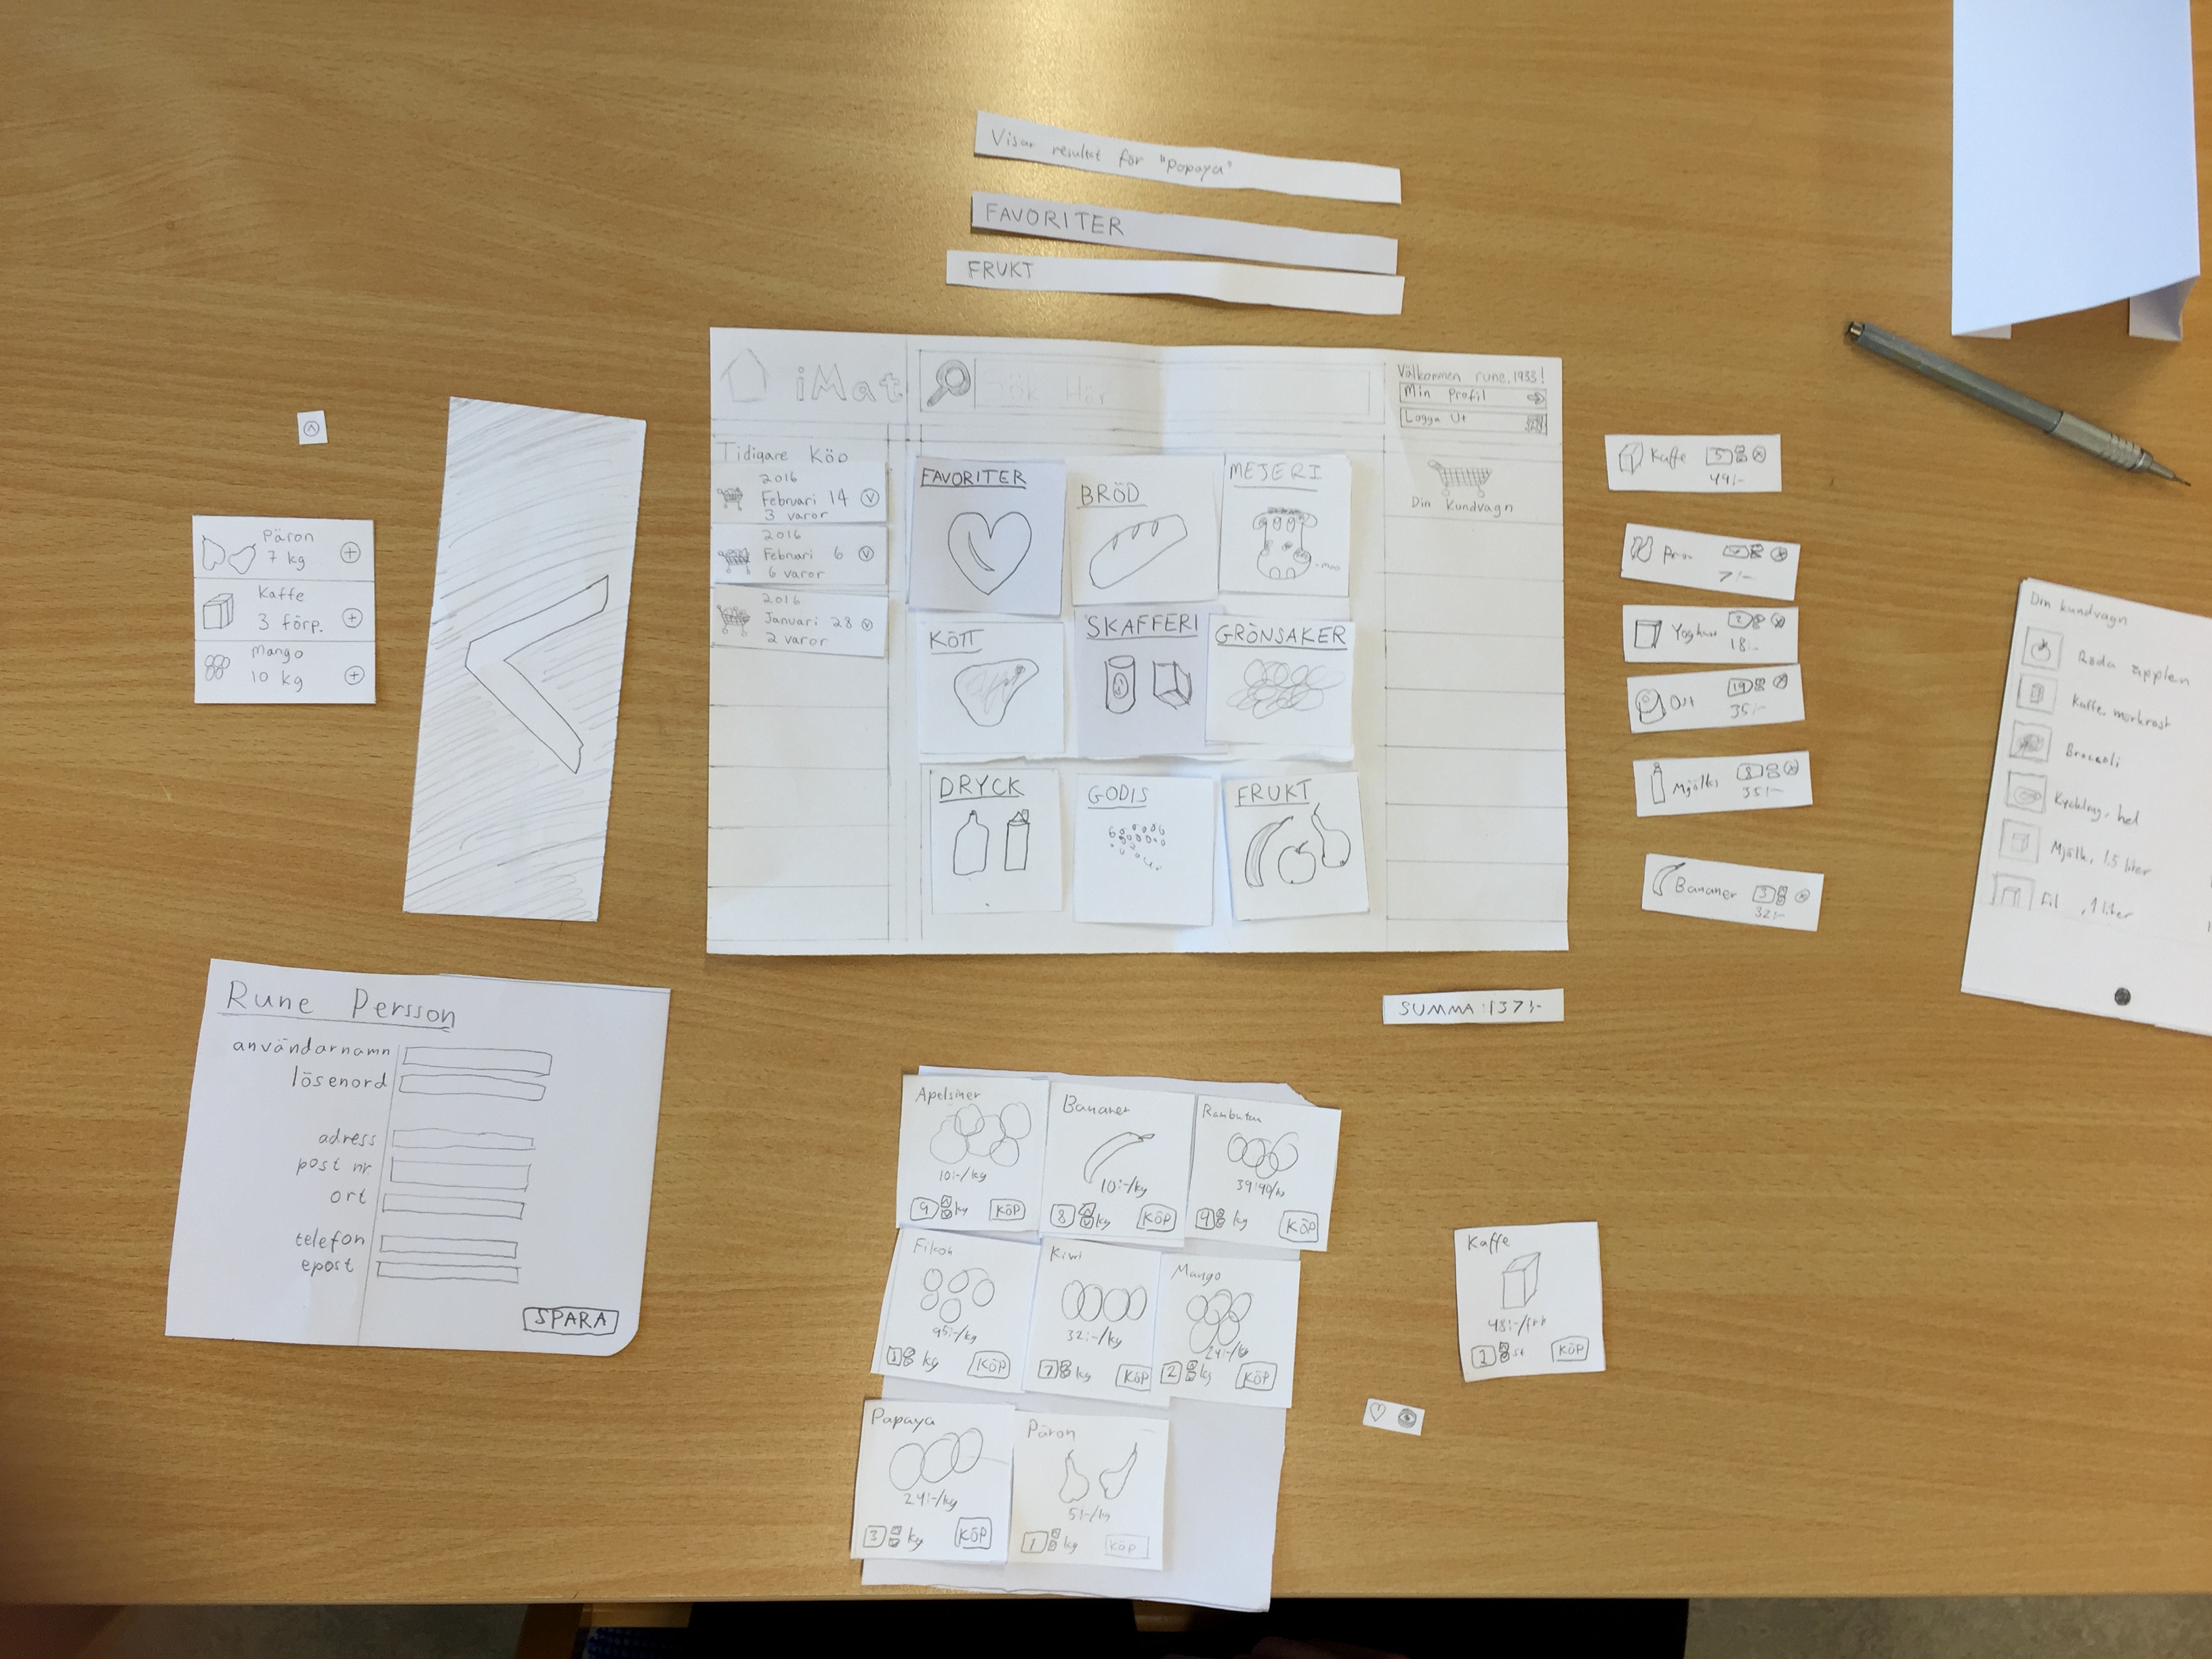 Visar resultat för "Papaya"
FAVORITER
FRUKT
iMat
Sök Här
Välkommen rune.1933!
Min Profil
Logga Ut
Tidigare Köp
2016
Februari 14
3 varor
2016
Februari 6
6 varor
2016
Januari 28
2 varor
FAVORITER
BRÖD
MEJERI
KÖTT
SKAFFERI
GRÖNSAKER
DRYCK
GODIS
FRUKT
Din Kundvagn
Päron
7 kg
Kaffe
3 förp.
Mango
10 kg
Kaffe 5
49:-
7:-
Yoghurt 2
18:-
Ost 19
35:-
Mjölk 8
35:-
Bananer 3
32:-
Din kundvagn
Röda äpplen
Kaffe, mörkrost
Broccoli
Kyckling, hel
Mjölk, 1.5 liter
Fil , 1 liter
SUMMA:137:-
Rune Persson
användarnamn
lösenord
adress
post nr
ort
telefon
epost
SPARA
Apelsiner
10:-/kg
9 kg KÖP
Bananer
10:-/kg
8 kg KÖP
Rambutan
39:90/kg
9 kg KÖP
Fikon
95:-/kg
kg KÖP
Kiwi
32:-/kg
7 kg KÖP
Mango
24:-/kg
2 kg KÖP
Papaya
24:-/kg
3 kg KÖP
Päron
5:-/kg
1 kg KÖP
Kaffe
48:-/frp
st KÖP